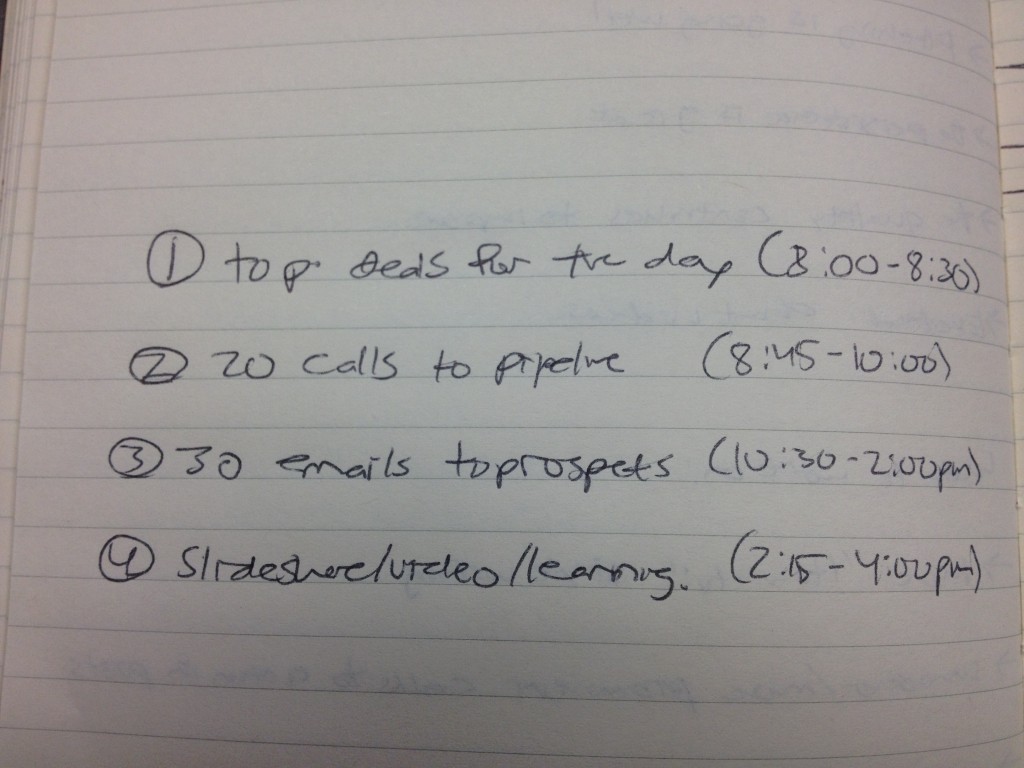 ① top deals for the day (8:00-8:30)
② 20 calls to pipeline (8:45-10:00)
③ 30 emails to prospets (10:30-2:00pm)
④ Slideshare/video/learning. (2:15-4:00pm)